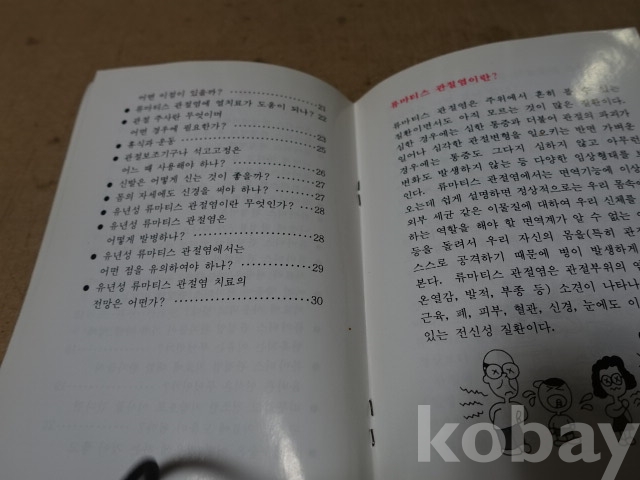 어떤 이점이 있을까? 21
● 류마티스 관절염에 열치료가 도움이 되나? 22
● 관절 주사란 무엇이며
어떤 경우에 필요한가? 23
● 휴식과 운동 25
● 관절보조기구나 석고고정은
어느 때 사용해야 하나? 26
● 신발은 어떻게 신는 것이 좋을까? 27
● 몸의 자세에도 신경을 써야 하나? 27
● 유년성 류마티스 관절염이란 무엇인가? 28
● 유년성 류마티스 관절염은
어떻게 발병하나? 28
● 유년성 류마티스 관절염에서는
어떤 점을 유의하여야 하나? 29
● 유년성 류마티스 관절염 치료의
전망은 어떤가? 30
류마티스 관절염이란?
류마티스 관절염은 주위에서 흔히 볼 수 있는
질환이면서도 아직 모르는 것이 많은 질환이다.
심한 경우에는 심한 통증과 더불어 관절의 파괴가
일어나 심각한 관절변형을 일으키는 반면 가벼운
경우에는 통증도 그다지 심하지 않고 아무런
변화도 발생하지 않는 등 다양한 임상형태를
인다. 류마티스 관절염에서는 면역기능에 이상
오는데 쉽게 설명하면 정상적으로는 우리 몸속
외부 세균 같은 이물질에 대하여 우리 신체를
하는 역할을 해야 할 면역계가 알 수 없는
등을 돌려서 우리 자신의 몸을(특히 관절
스스로 공격하기 때문에 병이 발생하게
본다. 류마티스 관절염은 관절부위의 염
온열감, 발적, 부종 등) 소견이 나타나
근육, 폐, 피부, 혈관, 신경, 눈에도 이
있는 전신성 질환이다.
kobay